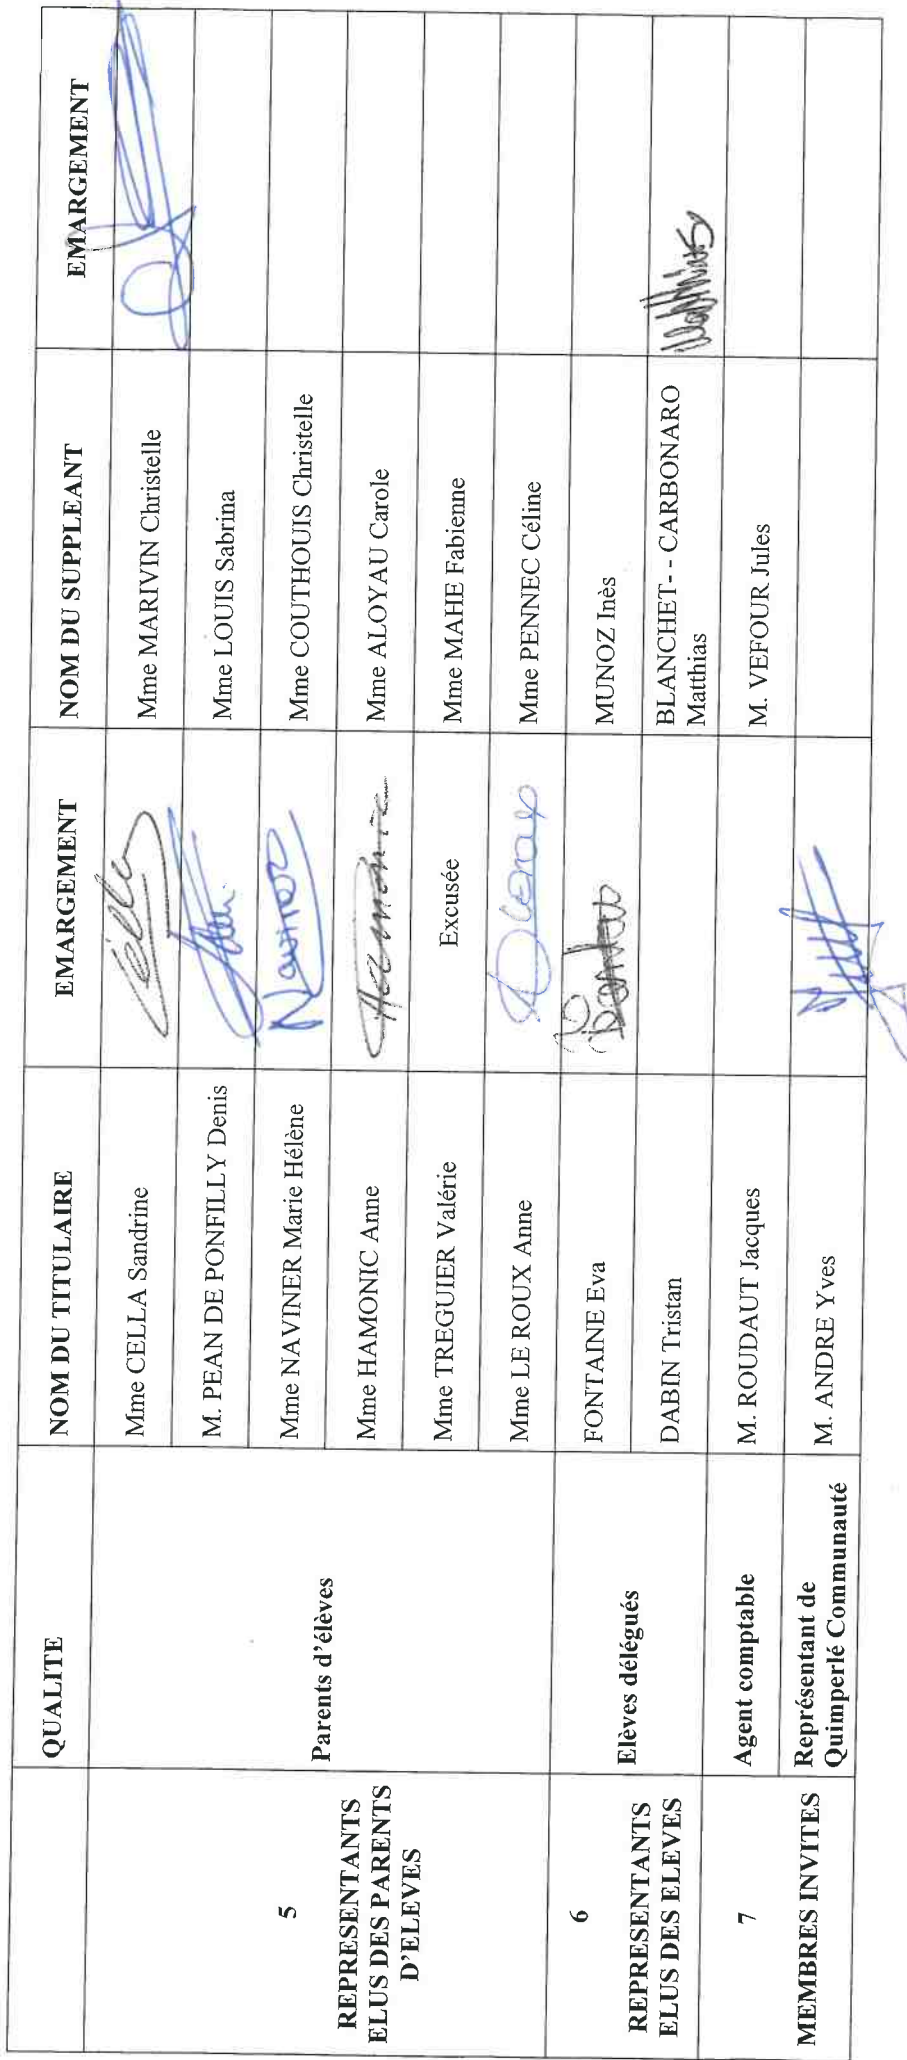 QUALITE
NOM DU TITULAIRE
EMARGEMENT
NOM DU SUPPLEANT
EMARGEMENT
5
REPRESENTANTS
ELUS DES PARENTS
D'ELEVES
Parents d'élèves
Mme CELLA Sandrine
Cella
Mme MARIVIN Christelle
M. PEAN DE PONFILLY Denis
Mme LOUIS Sabrina
Mme NAVINER Marie Hélène
Naviner
Mme COUTHOUIS Christelle
Mme HAMONIC Anne
Hamonic
Mme ALOYAU Carole
Mme TREGUIER Valérie
Excusée
Mme MAHE Fabienne
Mme LE ROUX Anne
Leroux
Mme PENNEC Céline
6
REPRESENTANTS
ELUS DES ELEVES
Elèves délégués
FONTAINE Eva
MUNOZ Inès
DABIN Tristan
BLANCHET- - CARBONARO
Matthias
Matthias
7
MEMBRES INVITES
Agent comptable
M. ROUDAUT Jacques
M. VEFOUR Jules
Représentant de
Quimperlé Communauté
M. ANDRE Yves